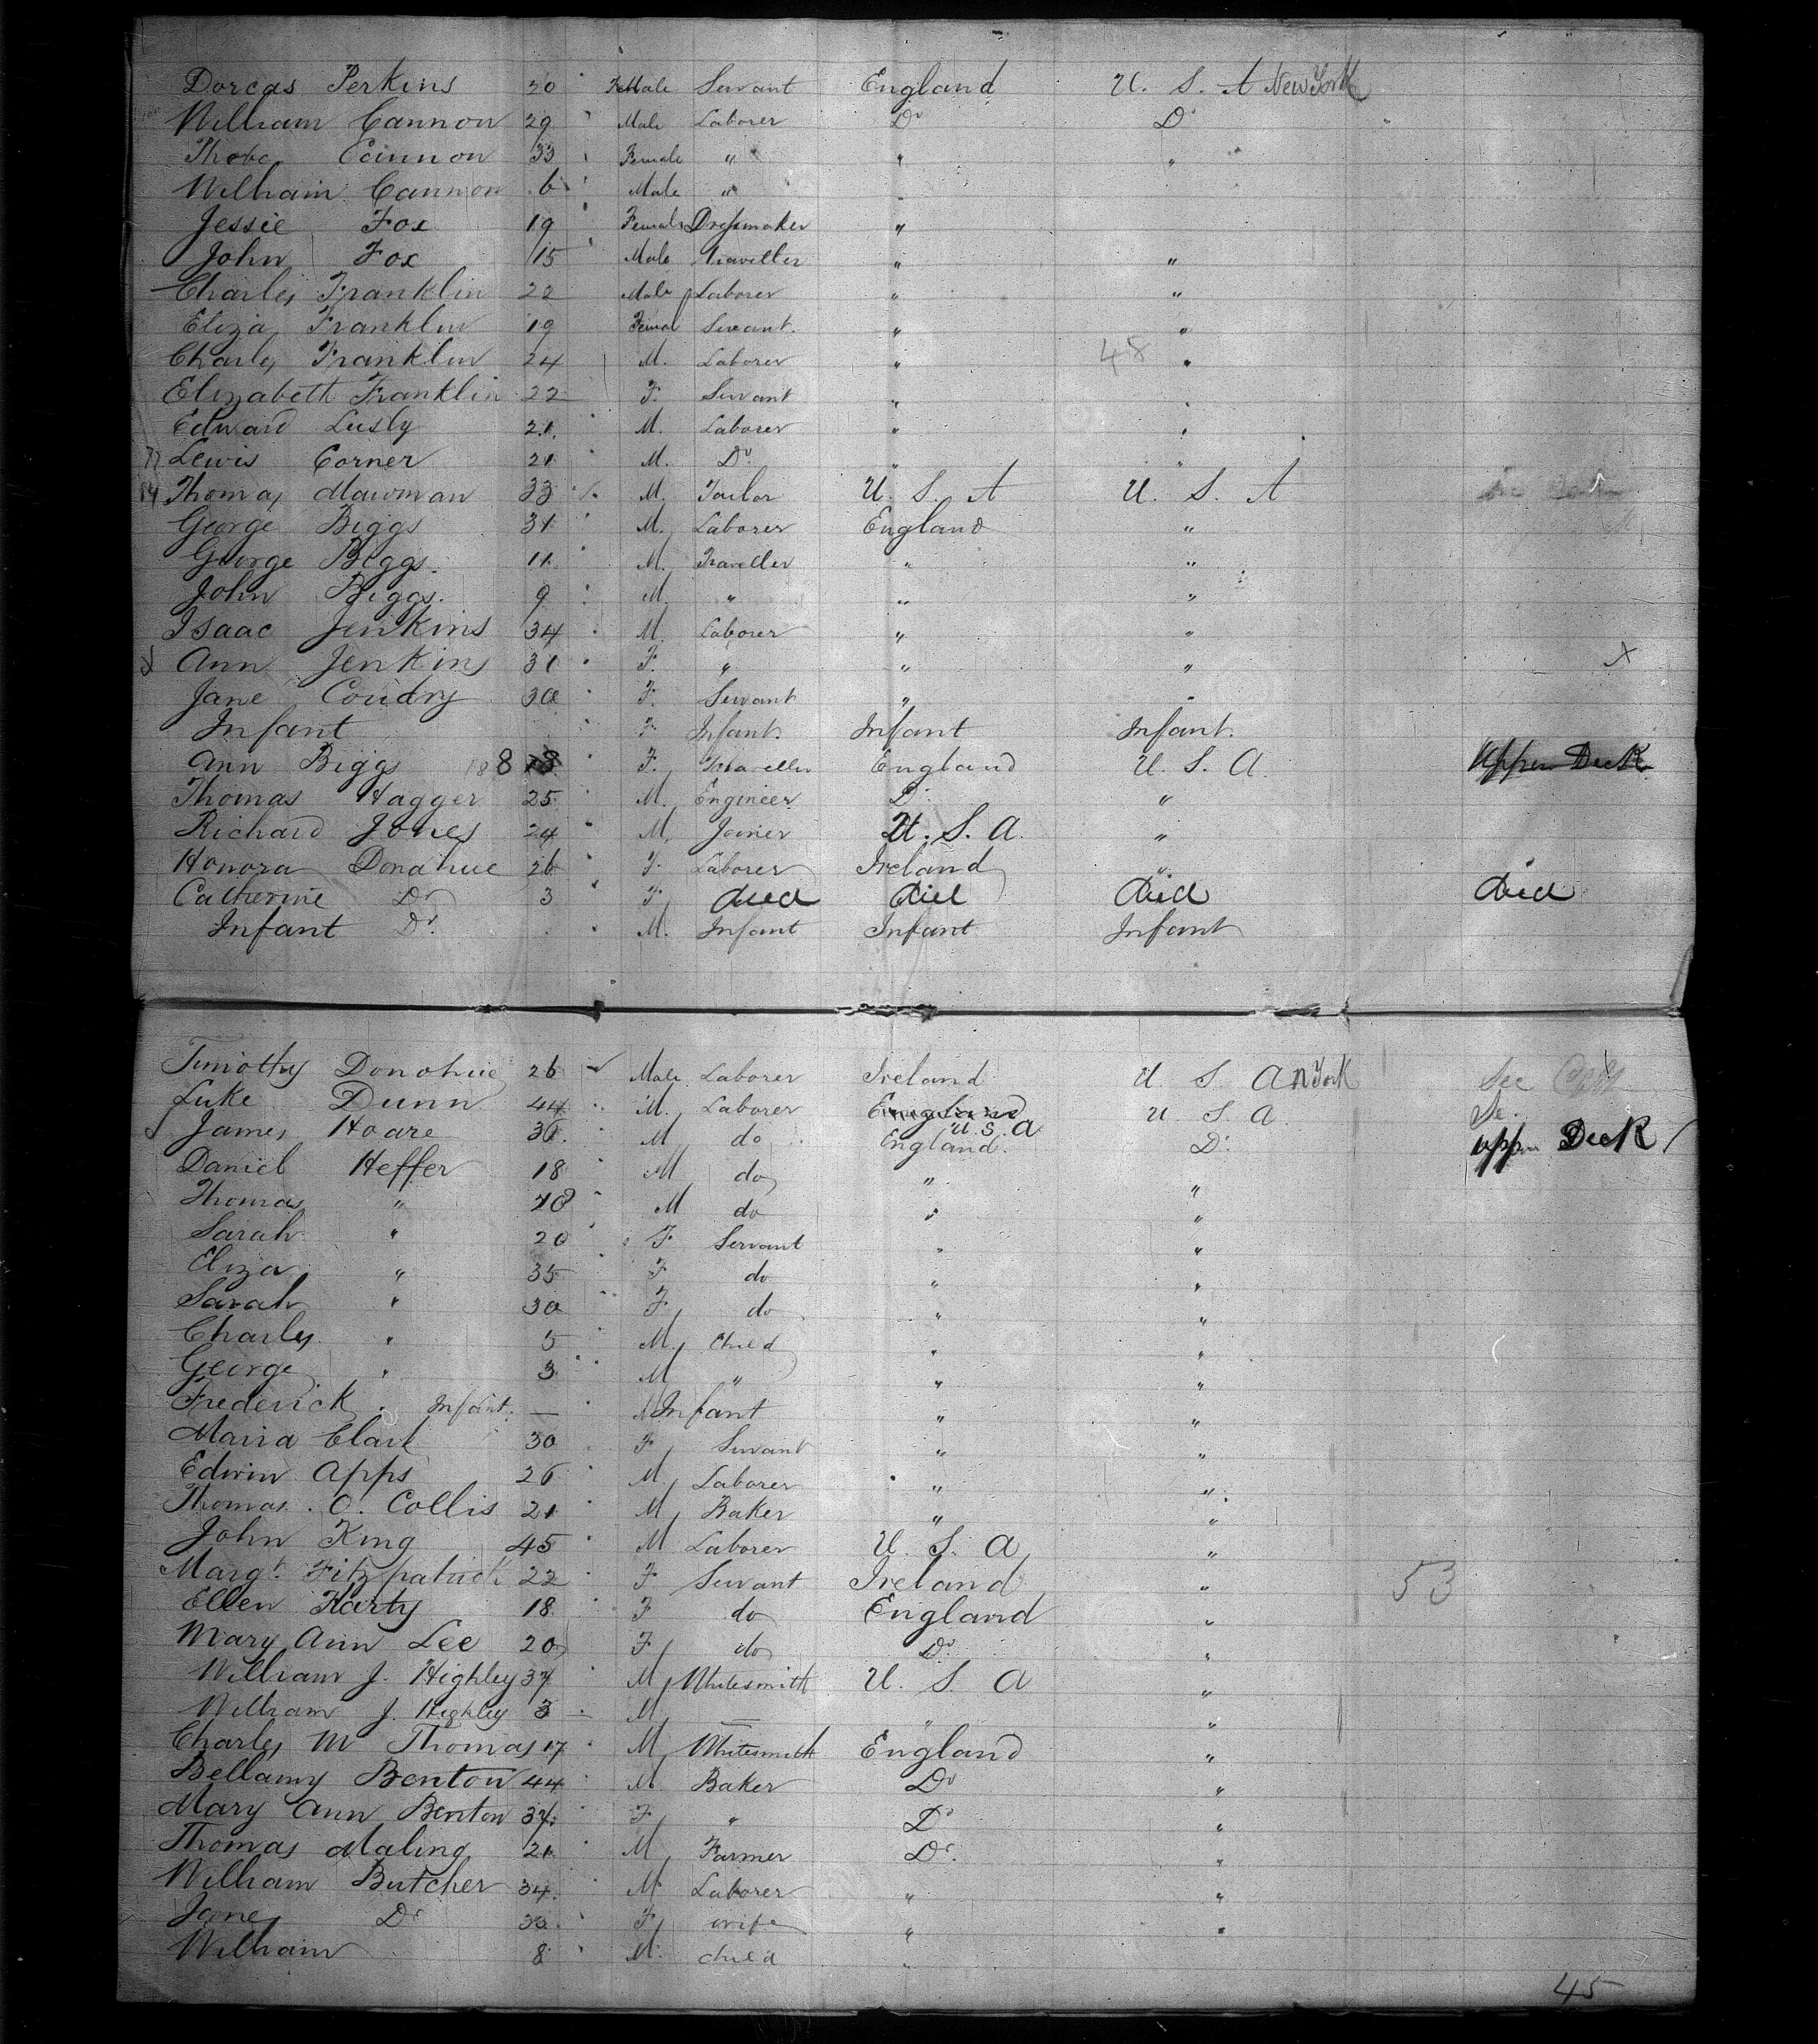 Dorcas Perkins 20 " Female Servant England U. S. A New York
William Cannon 29 " Male Laborer Do Do
Cannon 33 " Female " " "
William Cannon 6 " Male "
Jessie Fox 19 " Female Dressmaker "
John Fox 15 " Male Traveller " "
Charles Franklin 22 Male Laborer " "
Eliza Franklin 19 Femal Servant. " "
Charles Franklin 24 M. Laborer " 48 "
Elizabeth Franklin 22 F. Servant " "
Edward Lusly 21. " M. Laborer " "
Lewis Corner 21 " M. Do " "
14 Thomas Mawman 33 M. Tailor U. S. A U. S. A
George Biggs 31 " M. Laborer England "
George Biggs. 11. " M. Traveller " "
John Biggs. 9 " M. " " "
Isaac Jenkins 34 " M. Laborer " "
X Ann Jenkins 31 " F. " " " X
Jane Coudry 30 " F. Servant " "
Infant " F. Infant. Infant Infant.
Ann Biggs 8 " F. Traveller England U. S. A. Upper Deck
Thomas Hagger 25 " M. Engineer Do "
Richard Jones 24 " M. Joiner U. S. A. "
Honora Donahue 26 " F. Laborer Ireland "
Catherine Do 3 " F. died Died Died Died
Infant Do. " M. Infant Infant Infant
Timothy Donohue 26 Male Laborer Ireland U S A N York See
Luke Dunn 44 " M. Laborer England U. S. A U S A.
James Hoare 30. M do England. Do. upper Deck
Daniel Heffer 18 " M do " "
Thomas " " M do " "
Sarah " 20 " F Servant " "
Eliza " 35 " F do " "
Sarah " 30 " F do " "
Charles " 5 " M. Child " "
George " 3 " M " " "
Frederick " Infant. — M Infant " "
Maria Clark 30 F Servant " "
Edwin Apps 26 " M. Laborer " "
Thomas. O. Collis 21 " M Baker " "
John King 45 " M Laborer U. S. A "
Margt. Fitzpatrick 22 " F Servant Ireland " 53
Ellen Harty 18 " F do England "
Mary Ann Lee 20 F do Do "
William J. Highley 37 " M Whitesmith U. S. A "
William J. Highley 3 — M — " "
Charles M Thomas 17 " M Whitesmith England "
Bellamy Benton 44 " M. Baker Do "
Mary Ann Benton 37. " F " Do "
Thomas Maling 21 " M Farmer Do. "
William Butcher 34. " M Laborer " "
Jane Do 33. " F wife " "
William 8 " M. child "
45